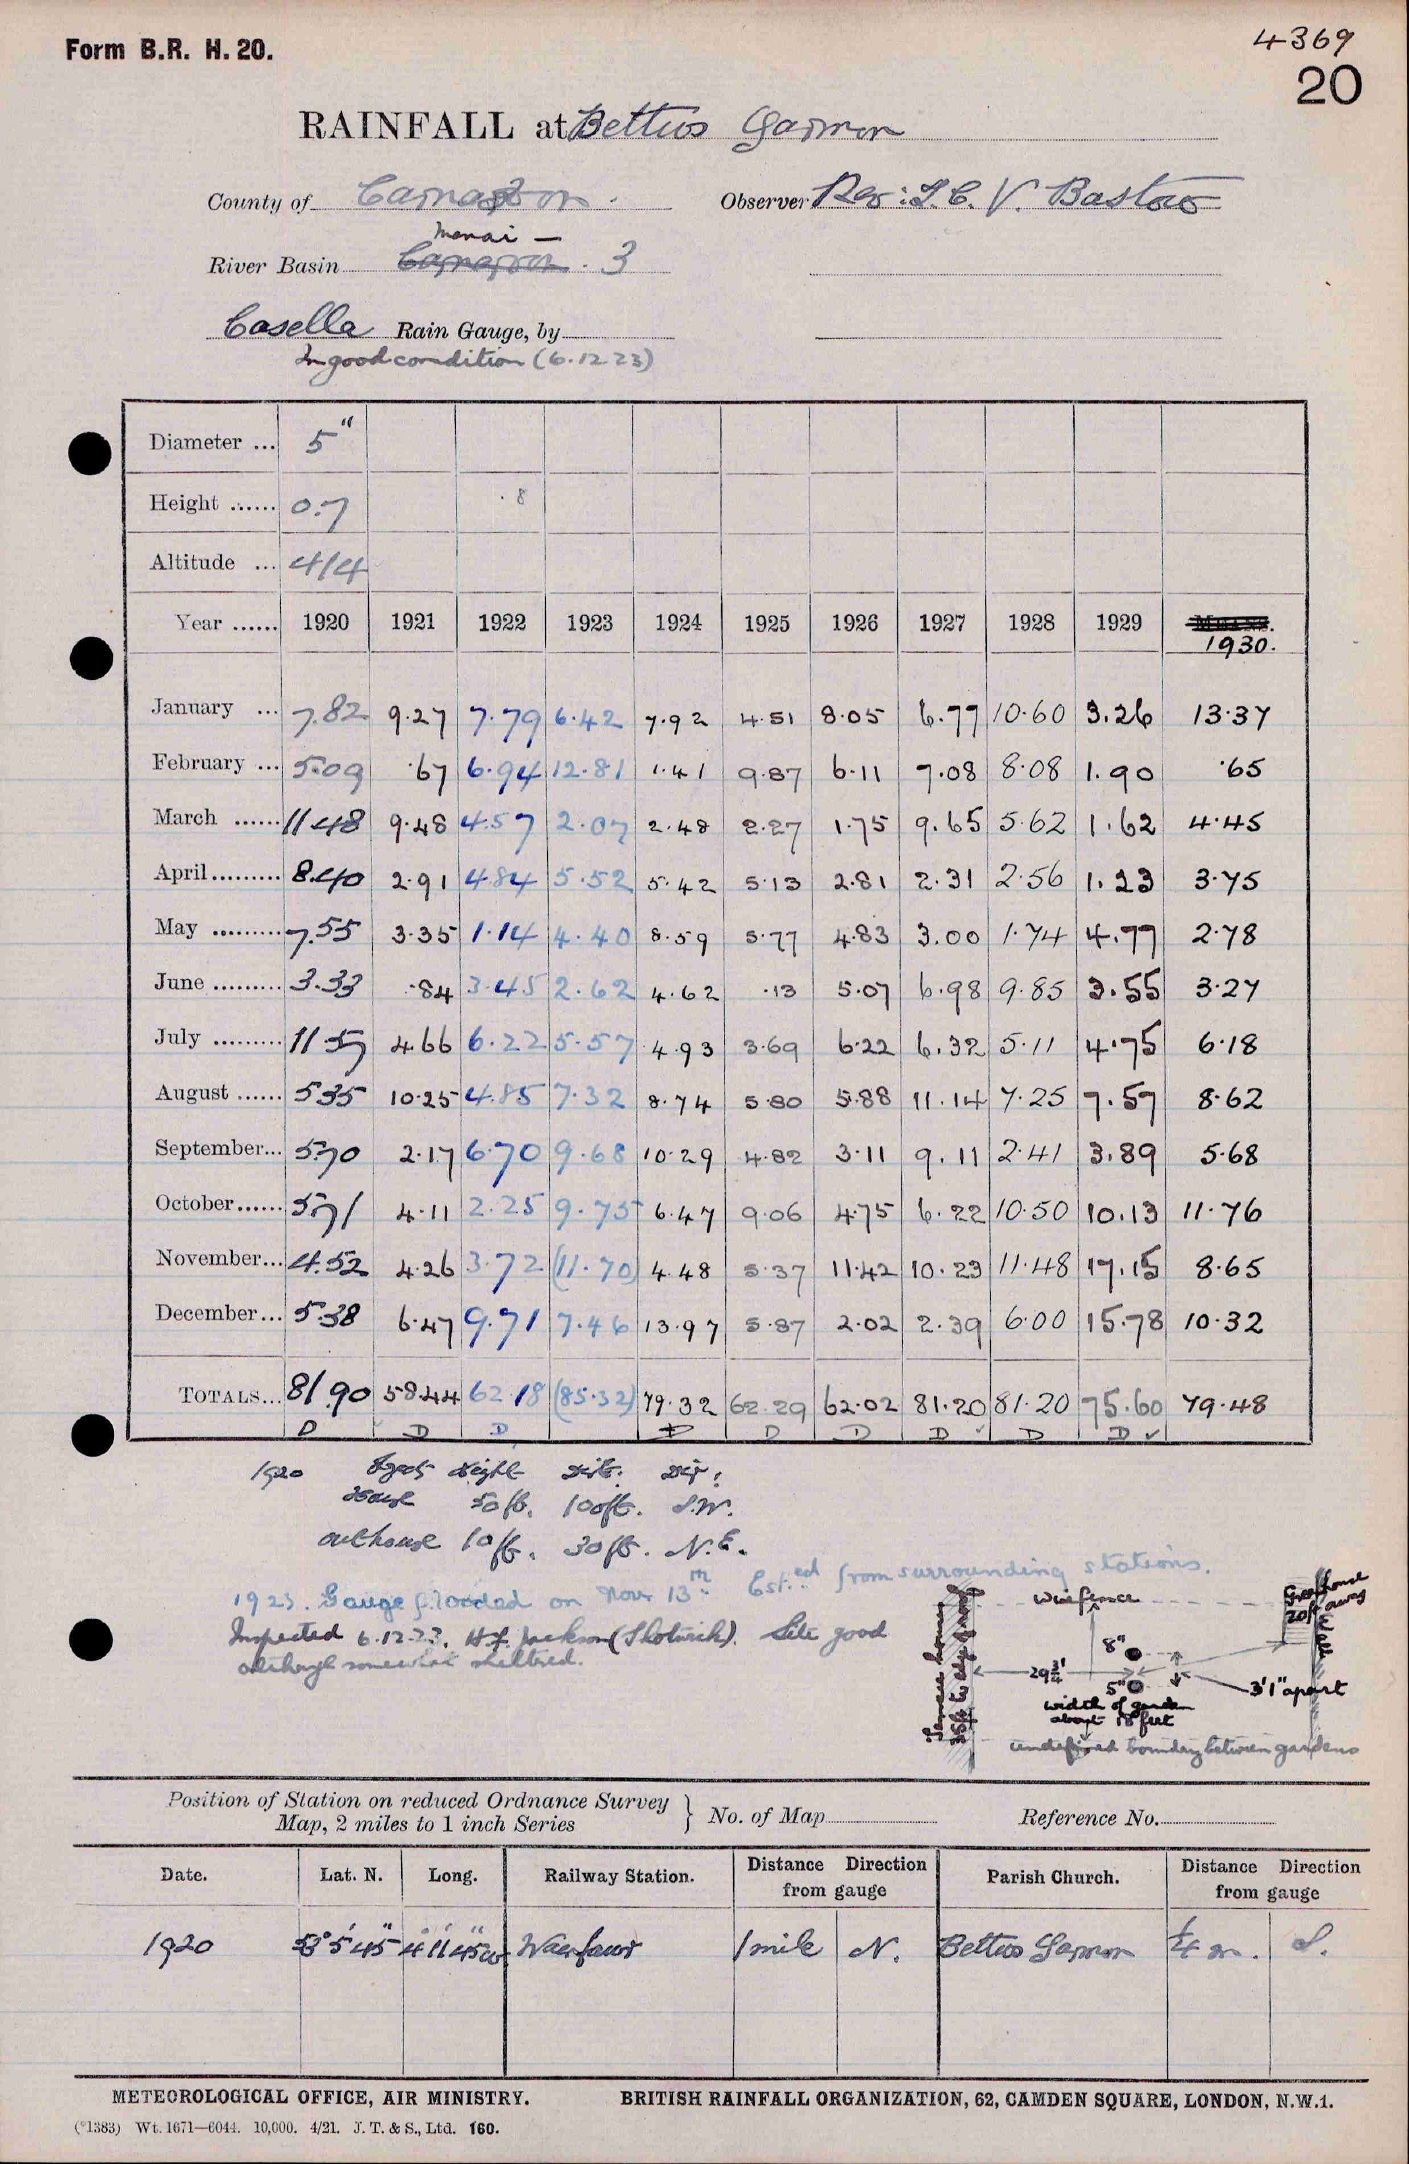 Form B.R. H. 20.
4369
20
RAINFALL at Bettws Garmon
County of Carnarvon. Observer Rev: T. C. V. Bastow
Menai —
River Basin Carnarvon. 3
Casella Rain Gauge, by
In good condition (6.12.23)
Diameter ... 5"
Height ...... 0.7 .8
Altitude ... 414
Year ...... 1920 1921 1922 1923 1924 1925 1926 1927 1928 1929 1930.
January ... 7.82 9.27 7.79 6.42 7.92 4.51 8.05 6.77 10.60 3.26 13.37
February ... 5.09 .67 6.94 12.81 1.41 9.87 6.11 7.08 8.08 1.90 .65
March ...... 11.48 9.48 4.57 2.07 2.48 2.27 1.75 9.65 5.62 1.62 4.45
April ......... 8.40 2.91 4.84 5.52 5.42 5.13 2.81 2.31 2.56 1.23 3.75
May ......... 7.55 3.35 1.14 4.40 8.59 5.77 4.83 3.00 1.74 4.77 2.78
June ......... 3.33 .84 3.45 2.62 4.62 .13 5.07 6.98 9.85 3.55 3.27
July ......... 11.57 4.66 6.22 5.57 4.93 3.69 6.22 6.32 5.11 4.75 6.18
August ...... 5.35 10.25 4.85 7.32 8.74 5.80 5.88 11.14 7.25 7.57 8.62
September... 5.70 2.17 6.70 9.68 10.29 4.82 3.11 9.11 2.41 3.89 5.68
October...... 5.71 4.11 2.25 9.75 6.47 9.06 4.75 6.22 10.50 10.13 11.76
November... 4.52 4.26 3.72 (11.70) 4.48 5.37 11.42 10.23 11.48 17.15 8.65
December... 5.38 6.47 9.71 7.46 13.97 5.87 2.02 2.39 6.00 15.78 10.32
TOTALS... 81.90 58.44 62.18 (85.32) 79.32 62.29 62.02 81.20 81.20 75.60 79.48
D D D D D D D ✓ D D ✓
1920 Object Height Dist. Dir:
House 50ft. 100ft. S.W.
outhouse 10ft. 30ft. N.E.
1923. Gauge flooded on Nov 13th. Est.ed from surrounding stations.
Inspected 6.12.23. H.f. Jackson (Shotwick). Site good
although somewhat sheltered.
wirefence
Greenhouse
20ft away
8"
29¾'
5"
3'1" apart
width of garden
about 18 feet
undefined boundary between gardens
Position of Station on reduced Ordnance Survey
Map, 2 miles to 1 inch Series } No. of Map Reference No.
Date. Lat. N. Long. Railway Station. Distance Direction from gauge Parish Church. Distance Direction from gauge
1920 53°5'45" 4°11'45"W Waenfawr 1 mile N. Bettws Garmon ¼ m. S.
METEOROLOGICAL OFFICE, AIR MINISTRY. BRITISH RAINFALL ORGANIZATION, 62, CAMDEN SQUARE, LONDON, N.W.1.
(*1383) Wt. 1671—6044. 10,000. 4/21. J. T. & S., Ltd. 160.